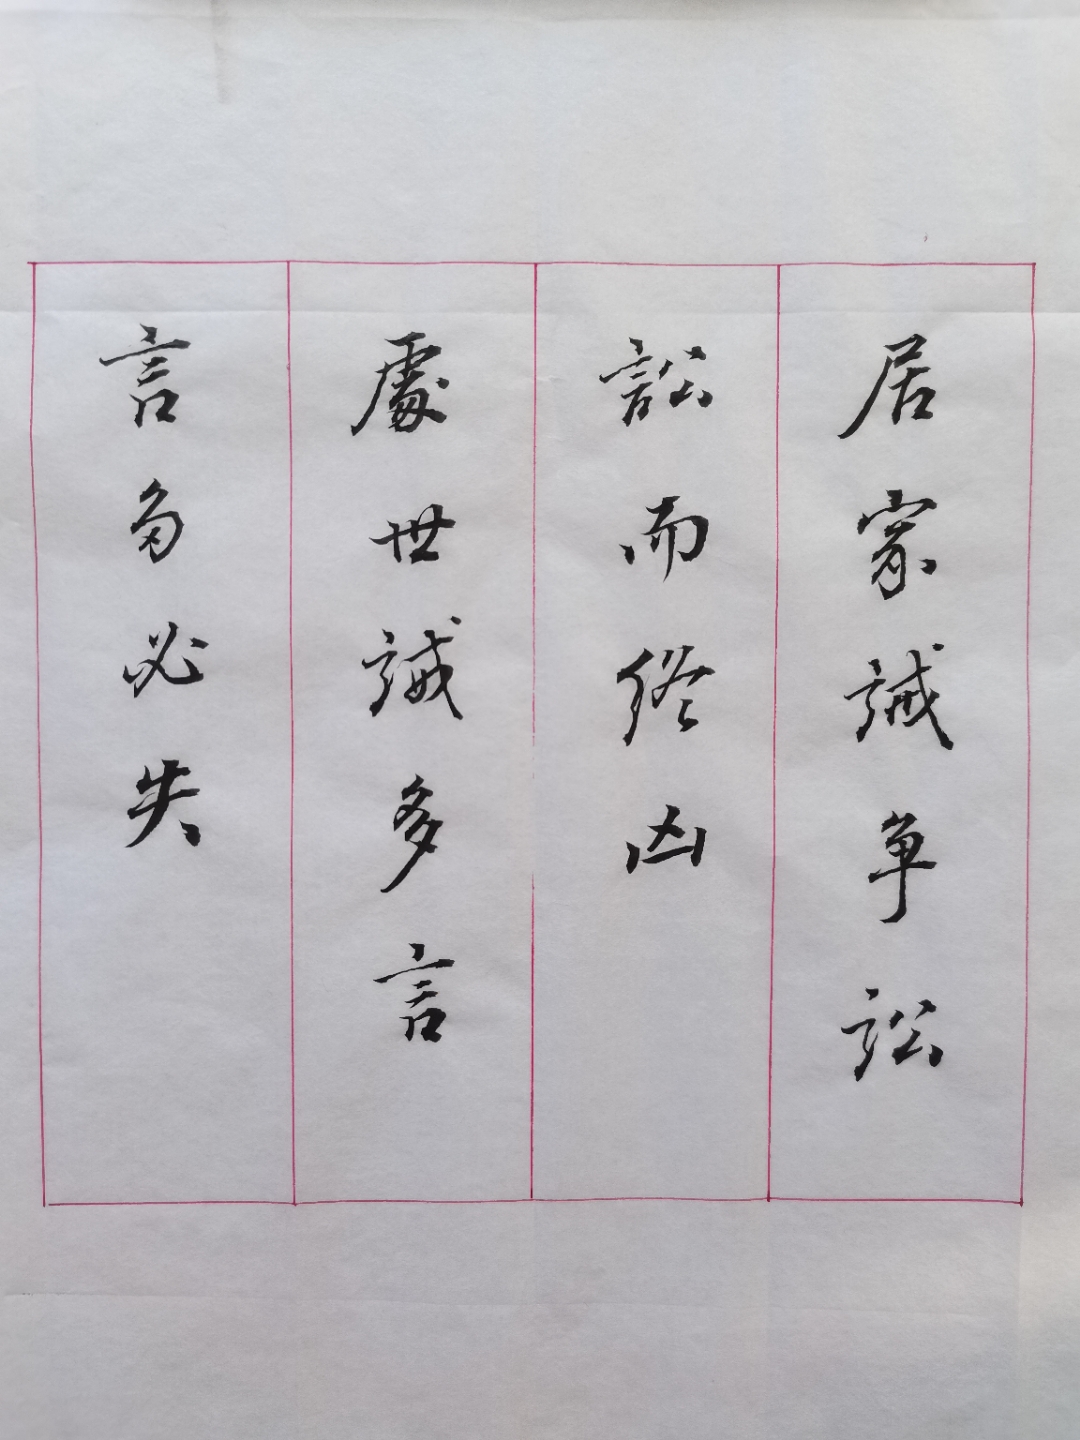 居家誡争訟
訟而終凶
處世誡多言
言多必失